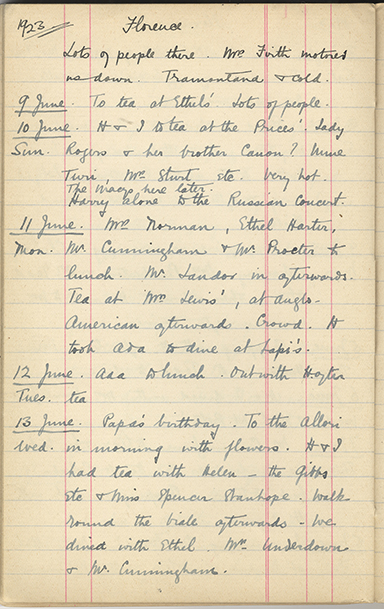 1923 Florence.
Lots of people there. Mrs Firth motored
us down. Tramontana & cold.
9 June. To tea at Ethel's. Lots of people.
10 June. H & I to tea at the Prices'. Lady
Sun. Rogers & her brother Canon? Mme
Turi, Mrs Sturt etc. Very hot.
The Macs here later.
Harry alone to the Russian Concert.
11 June. Mrs Norman, Ethel Harter,
Mon. Mr. Cunningham & Mr. Procter to
lunch. Mr. Landor in afterwards.
Tea at Mrs Lewis', at Anglo-
American afterwards. Crowd. H
took Ada to dine at Lapi's.
12 June. Ada to lunch. Out with
Tues. tea
13 June. Papa's birthday. To the Allori
Wed. in morning with flowers. H & I
had tea with Helen – the Gibbs
etc & Miss Spencer Stanhope. Walk
round the viale afterwards – We
dined with Ethel. Mrs Underdown
& Mr. Cunningham.